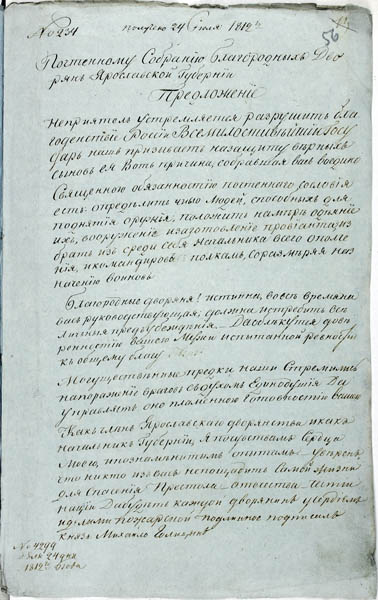 № 234 получено 24 июля 1812го
56
Почтенному Собранию благородныхъ Дво
рянъ Ярославской Губернiи
Предложенiе
Непрiятель устремляется разрушить бла
годенствiе России Всемилостивѣйшiй Госу
дарь нашъ призываетъ на защиту вѣрныхъ
сыновъ ея Вотъ причина, собравшая васъ воедино
Священною обязанностiю почтеннаго сословiя
есть: опредѣлить число Людей, способныхъ для
поднятiя оружiя, положить одѣянiе
ихъ, вооруженiе изготовленiе провiанта, из
брать изъ среди себя Начальника всего ополче
нiя, и командировъ полкамъ, соразмѣряя наз
наченiю воиновъ
Благородные дворяне! истинна, во всѣ времяна
васъ руководствующая, должна истребить всѣ
личныя предубѣжденiя. Да
вашего испытанной ревность
къ общему благу
Могущественные предки наши Стремились
на пораженiе враговъ съ духомъ Единодушiя Да
управляетъ оно пламенною Готовностiю вашею
Какъ членъ Ярославскаго дворянства и какъ
начальникъ Губернiи, Я по чувствамъ Сердца
Моего,
что никто изъ васъ не пощадитъ Самой жизни
для Спасенiя Престола отечества
Да будетъ каждой дворянинъ усердiемъ
Пожарской подлинное подписалъ
князь Михайло Голицынъ
№ 4299
Июля 24 дня
1812 года